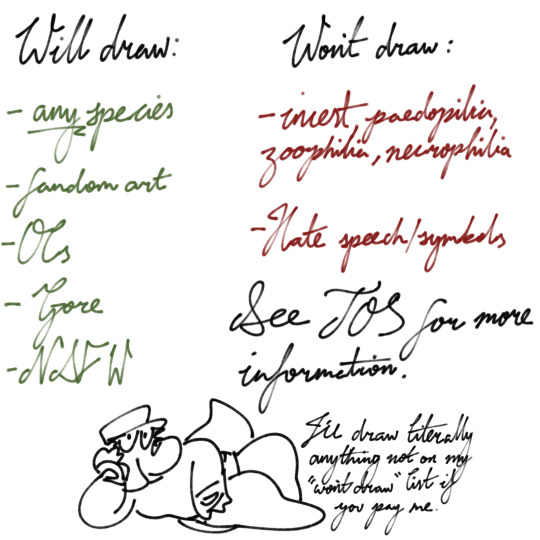 Will draw:
- any species
- fandom art
- OCs
- Gore
- NSFW
Won't draw:
- incest, paedopilia,
zoophilia, necrophilia
- Hate speech/symbols
See TOS for more
information.
I'll draw literally
anything not on my
"won't draw" list if
you pay me.